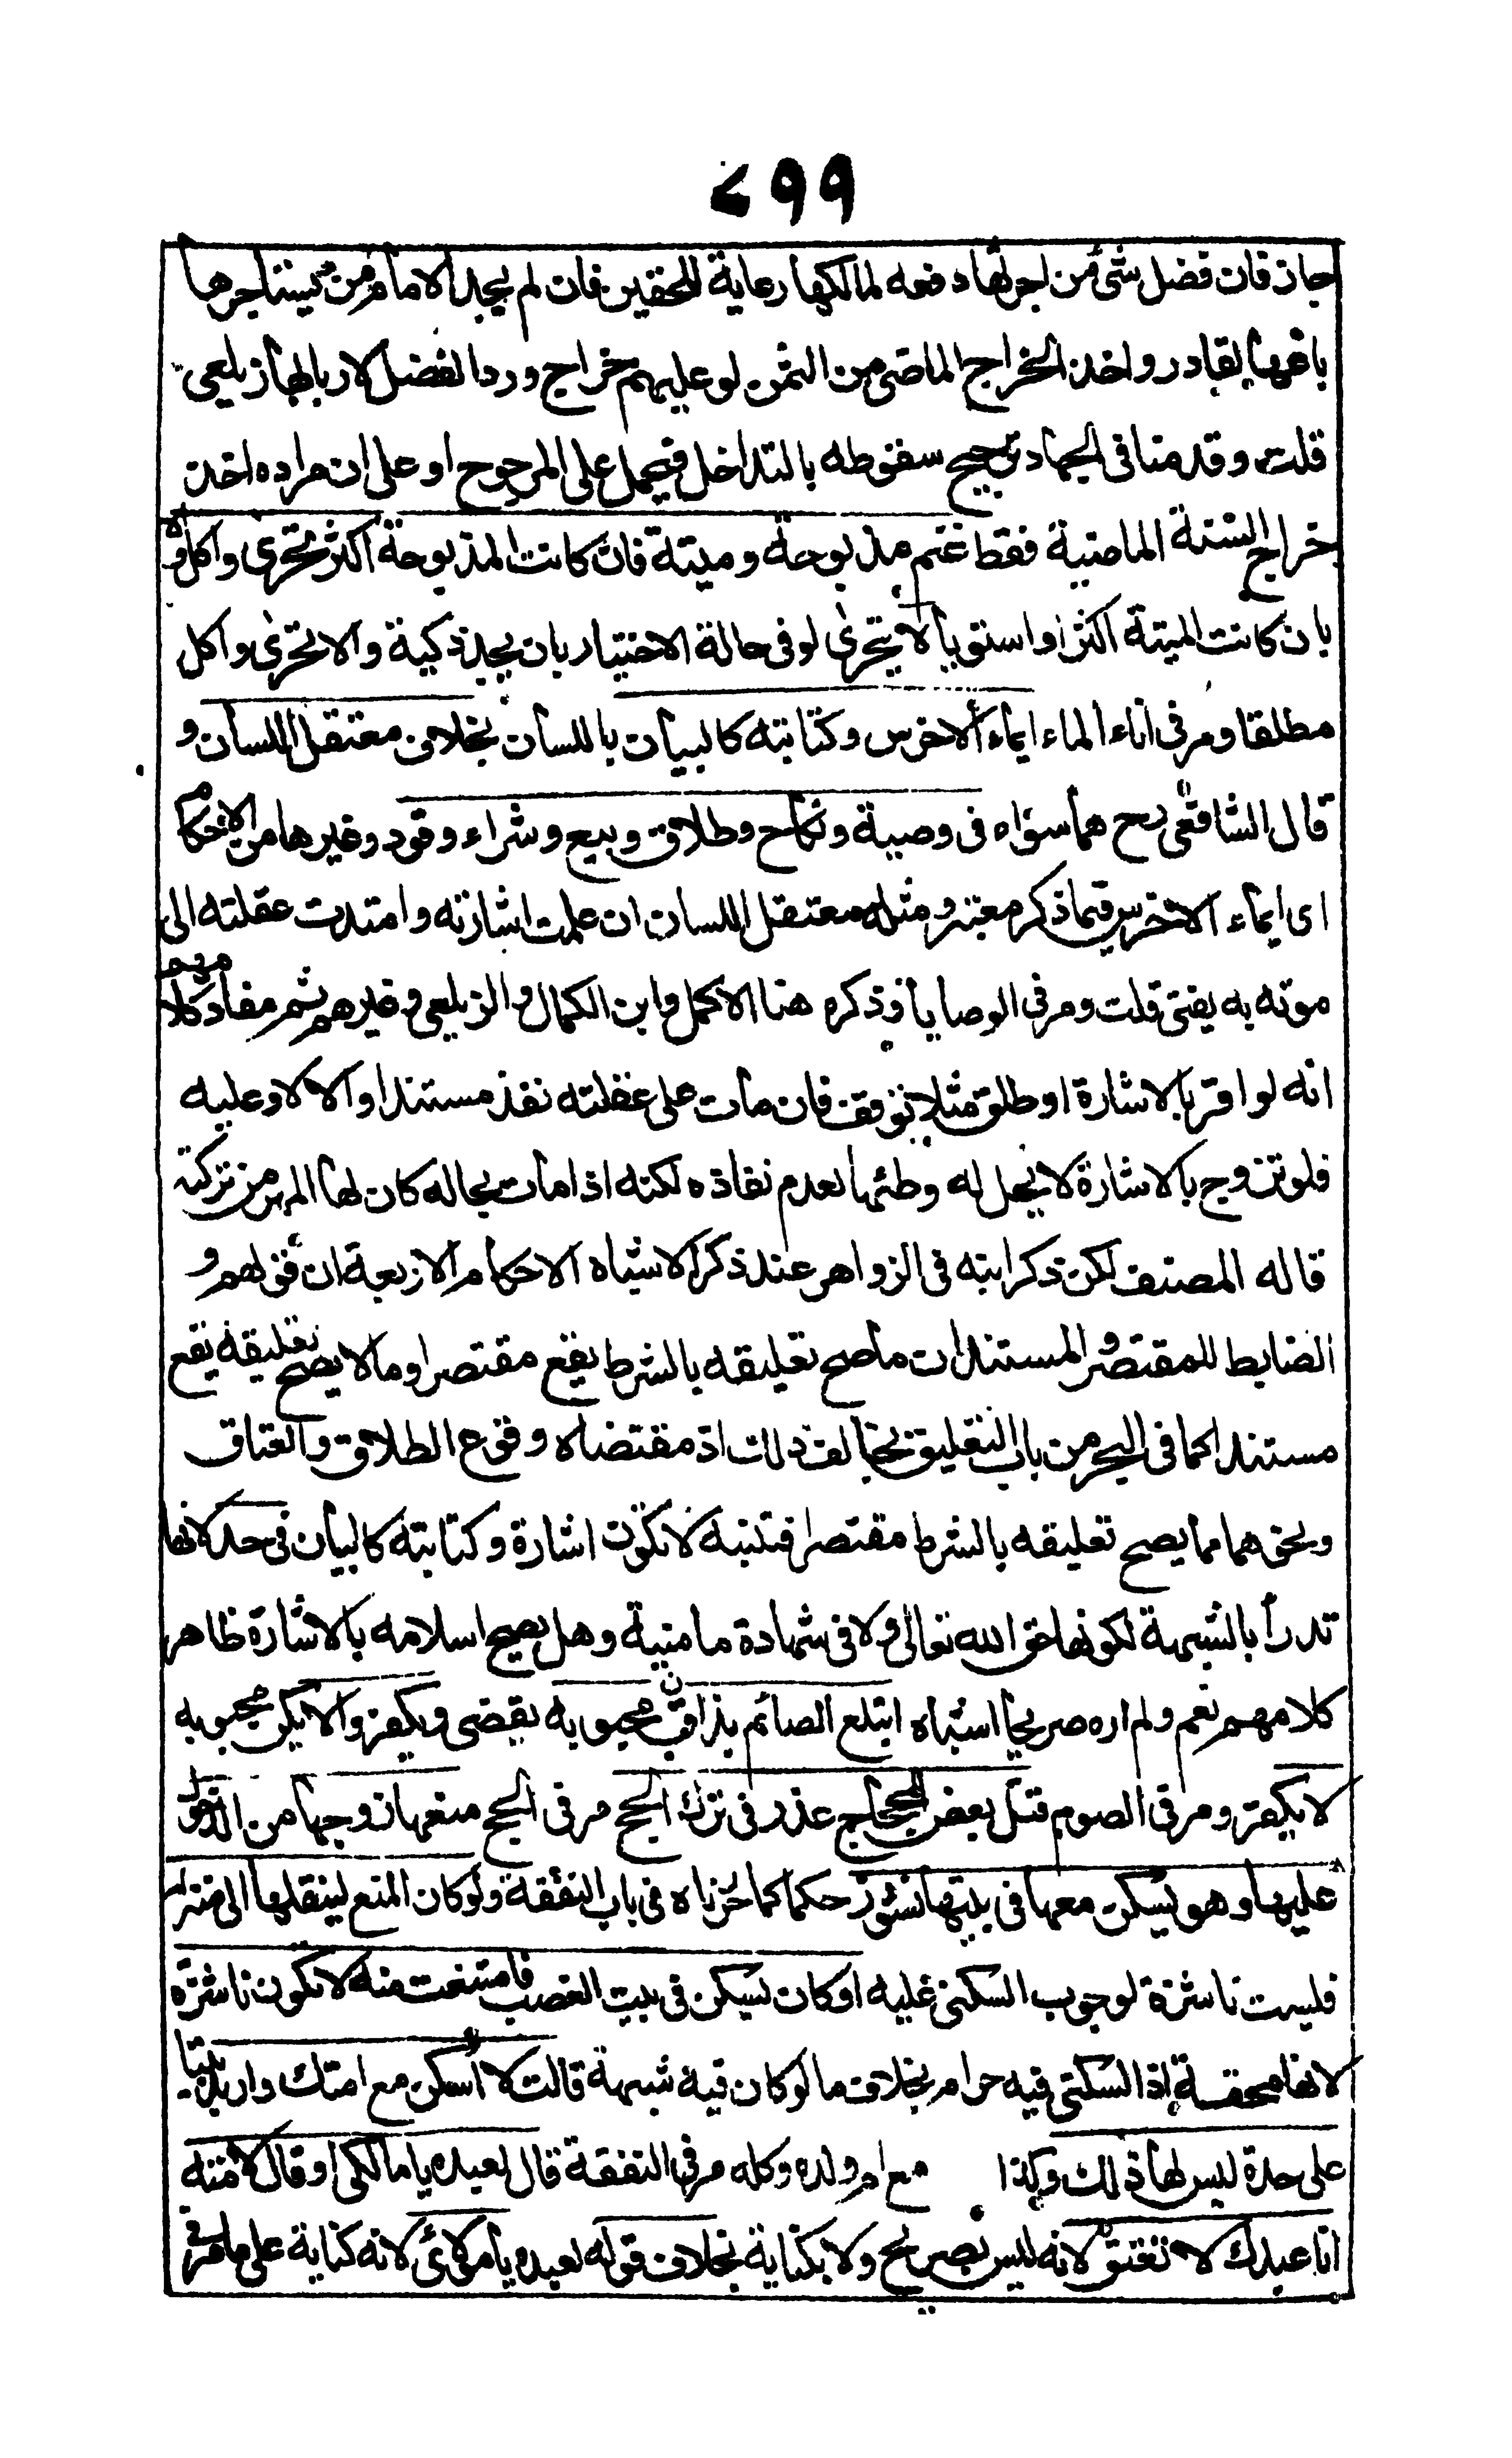 ٤٩٩
جاز فان فضل شئ من اجرتها دفعه لمالكها رعاية للحقين فان لم يجد الامام من يستاجرها
باعها لقادر واخذ الخراج الماضى من الثمن لو عليهم خراج ورد الفضل لاربابها زيلعى
قلت وقدمنا فى الجهاد ترجيح سقوطه بالتداخل فيحمل على المرجوح او على ان مراده اخذ
خراج السنة الماضية فقط غنم مذبوحة وميتة فان كانت المذبوحة اكثر تحرى واكل والا
بان كانت الميتة اكثر او استويا لا يتحرى لو فى حالة الاختيار بان يجد ذكية والا تحرى واكل
مطلقا ومر فى اناء الماء ايماء الاخرس وكتابته كالبيان باللسان بخلاف معتقل اللسان و
قال الشافعى رح هما سواء فى وصية ونكاح وطلاق وبيع وشراء وقود وغيرها من الاحكام
اى ايماء الاخرس فيما ذكر معتبر ومثله معتقل اللسان ان علمت اشارته وامتدت عقلته الى
موته به يفتى قلت ومر فى الوصايا وذكره هنا الاكمل وابن الكمال والزيلعى وغيرهم ثم مفاد كلامهم
انه لو اقر بالاشارة او طلق مثلا توقف فان مات على عقلته نفذ مستندا والا لا وعليه
فلو تزوج بالاشارة لا يحل له وطئها لعدم نفاذه لكنه اذا مات بحاله كان لها المهر من تركته
قاله المصنف لكن ذكر ابنه فى الزواهر عند ذكر الاشباه الاحكام الاربعة ان قولهم و
الضابط للمقتصر والمستند ان ما صح تعليقه بالشرط يقع مقتصرا وما لا يصح تعليقه يقع
مستندا كما فى البحر من باب التعليق يخالف ذلك اذ مقتضاه وقوع الطلاق والعتاق
ونحوهما مما يصح تعليقه بالشرط مقتصرا فتنبه لا تكون اشارة وكتابته كالبيان فى حد لانها
تدرأ بالشبهة لكونها حق الله تعالى ولا فى شهادة ما منية وهل يصح اسلامه بالاشارة ظاهر
كلامهم نعم ولم اره صريحا اشباه ابتلع الصائم بزاق محبوبه يقضى ويكفر والا يكن محبوبه
لا يكفر ومر فى الصوم قتل بعض الحجاج عذر فى ترك الحج مر فى الحج منعها زوجها من الدخول
عليها وهو يسكن معها فى بيتها نشوز حكما كما حررناه فى باب النفقة ولو كان المنع لينقلها الى منزله
فليست ناشزة لوجوب السكنى عليه او كان يسكن فى بيت الغصب فامتنعت منه لا تكون ناشزة
لانها محقة اذ السكنى فيه حرام بخلاف ما لو كان فيه شبهة قالت لا اسكن مع امتك واريد بيتا
على حدة ليس لها ذلك وكذا مع ام ولده وكله مر فى النفقة قال لعبده يا مالكى او قال لامته
انا عبدك لا تعتق لانه ليس بصريح ولا بكناية بخلاف قوله لعبده يا مولائى لانه كناية على ما مر فى